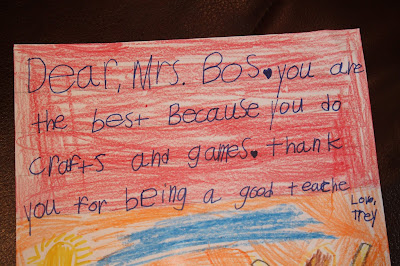 Dear, Mrs. Bos. you are
the best Because you do
crafts and games. thank
you for being a good teache
Love,
Trey